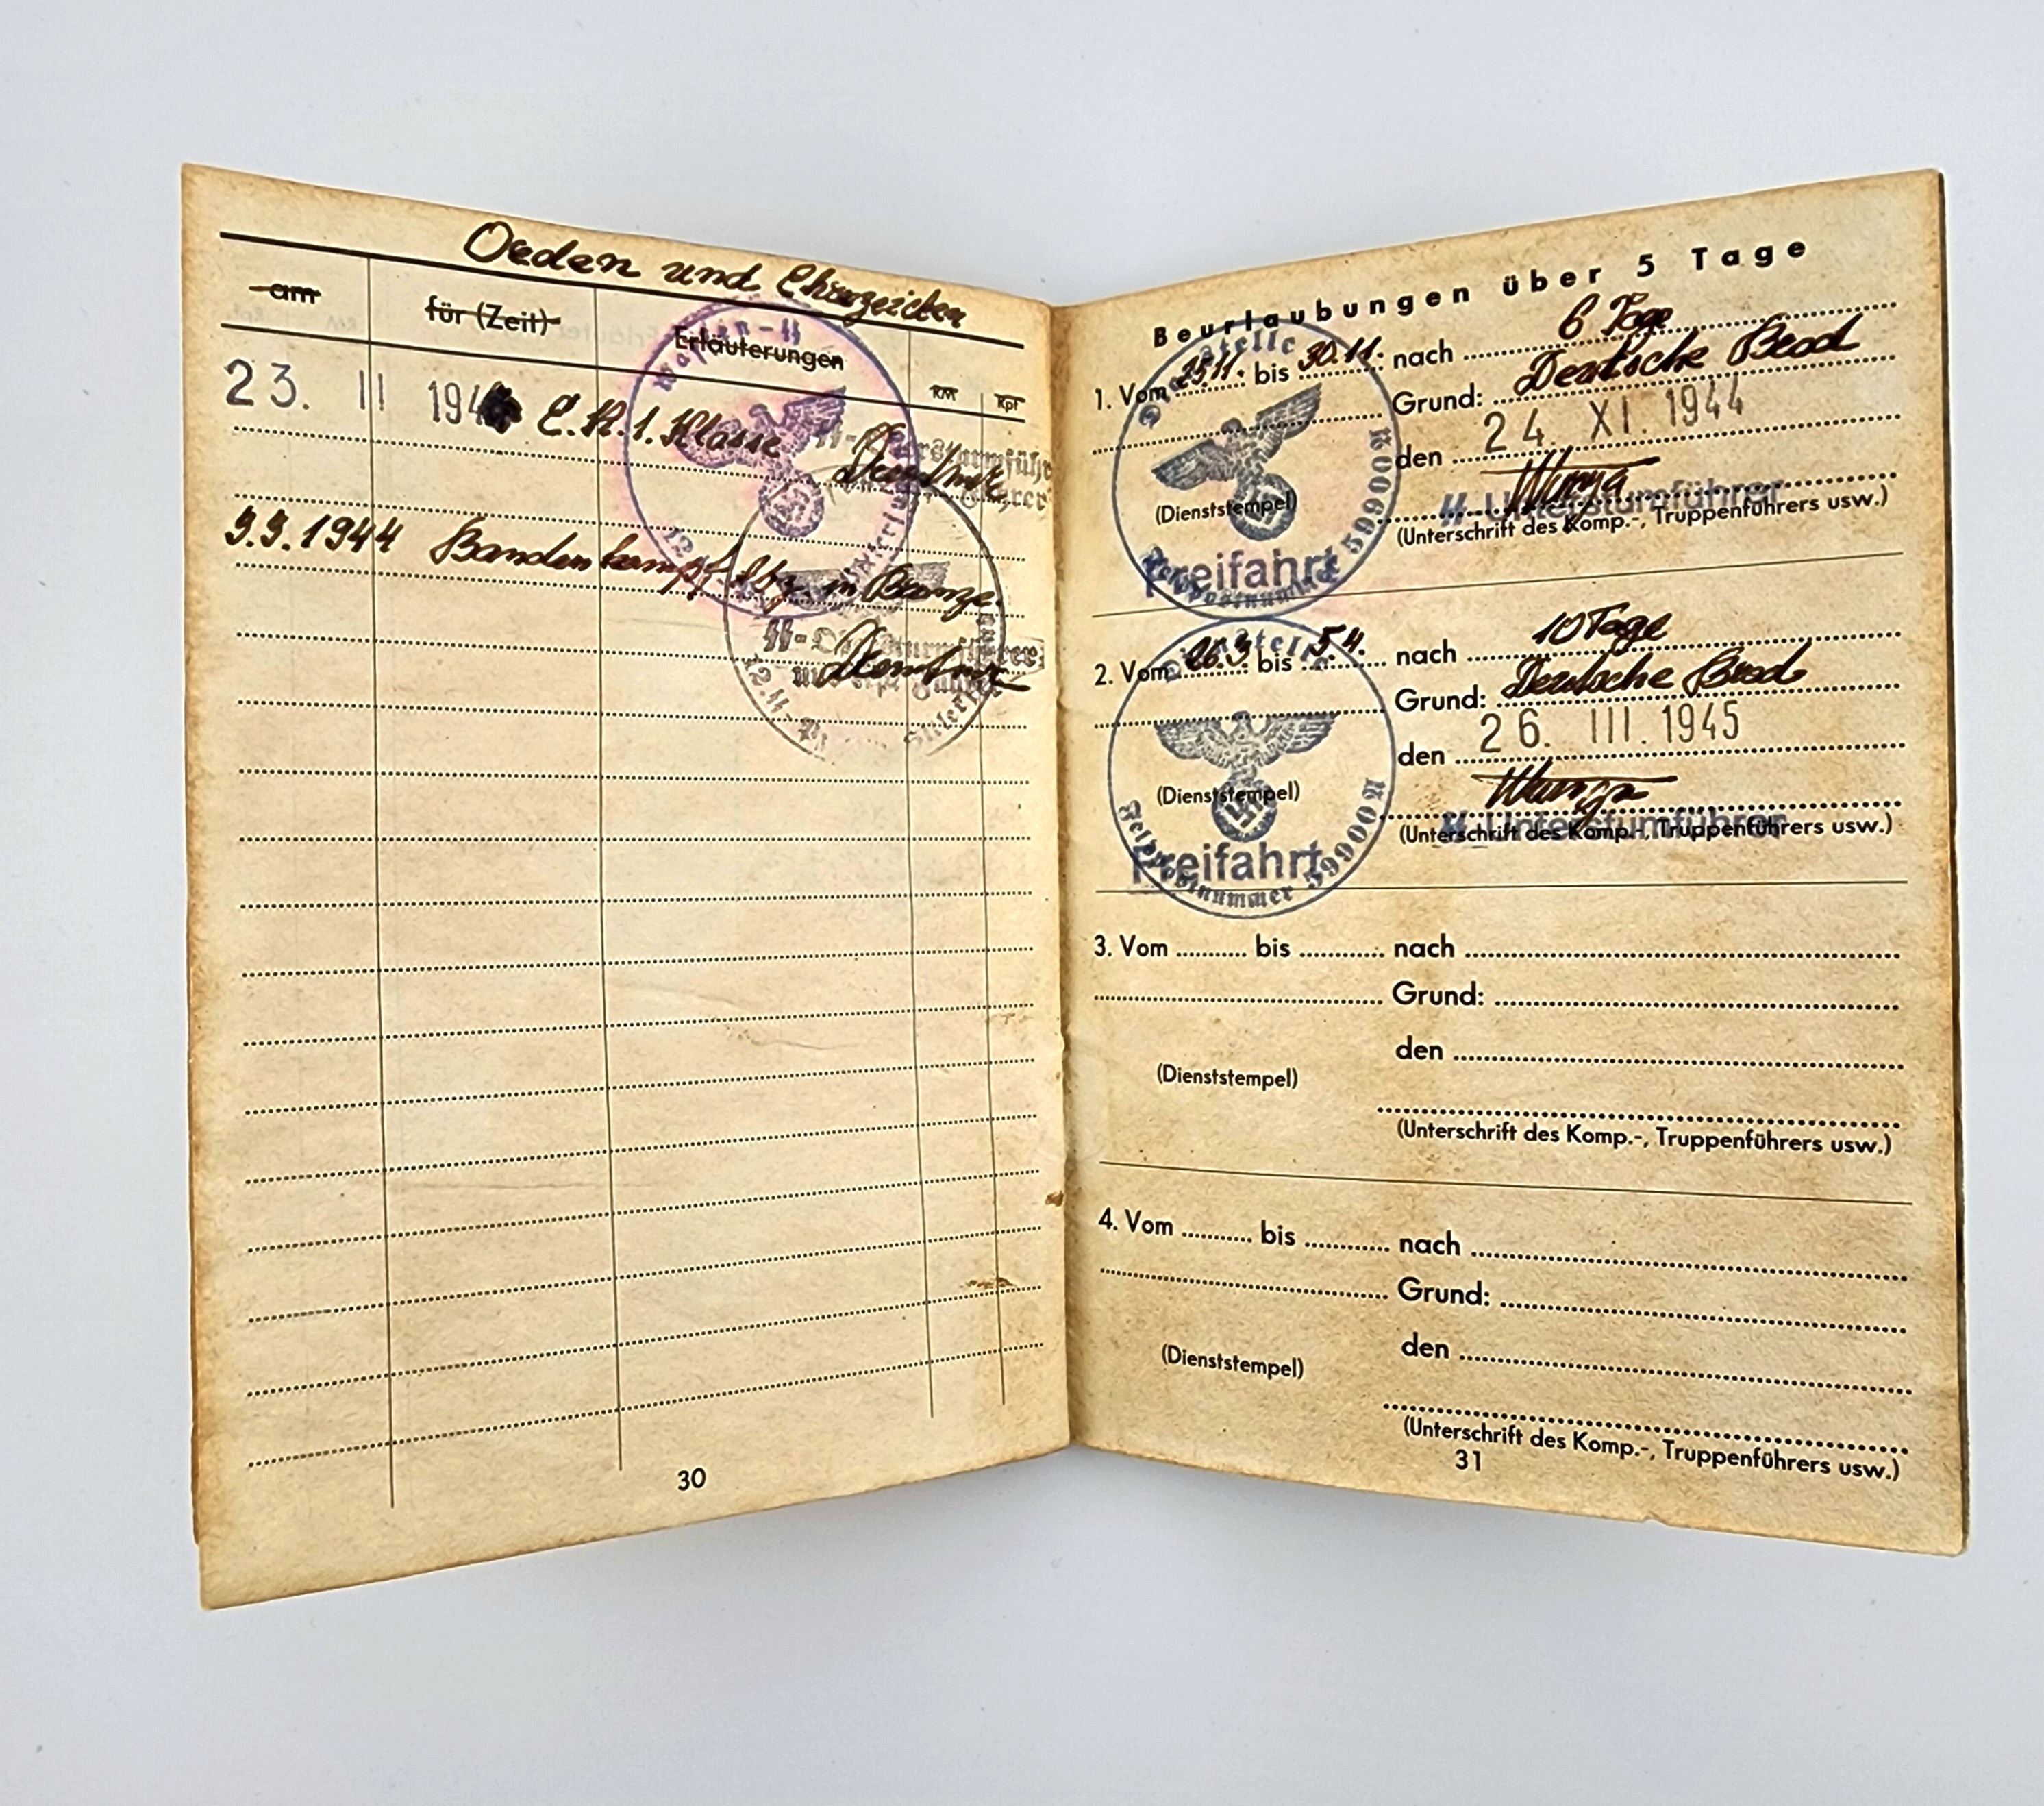 Orden und Ehrenzeichen
am für (Zeit) Erläuterungen RM Rpf
Waffen-SS
23. II 194 E.K. 1. Klasse
9.9.1944 Bandenkampf Abz. in Bronze
12. SS-
30
Beurlaubungen über 5 Tage
6 Tage
1. Vom 25.11. bis 30.11. nach Deutsche Brod
Grund:
den 24 XI. 1944
SS-Untersturmführer
(Dienststempel)
(Unterschrift des Komp.-, Truppenführers usw.)
Dienststelle
Feldpostnummer 59900A
Freifahrt
10 Tage
2. Vom 26.3. bis 5.4. nach Deutsche Brod
Grund:
den 26. III. 1945
SS-Untersturmführer
(Dienststempel)
(Unterschrift des Komp.-, Truppenführers usw.)
Dienststelle
Feldpostnummer 59900A
Freifahrt
3. Vom bis nach
Grund:
den
(Dienststempel)
(Unterschrift des Komp.-, Truppenführers usw.)
4. Vom bis nach
Grund:
den
(Dienststempel)
(Unterschrift des Komp.-, Truppenführers usw.)
31